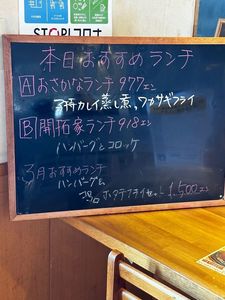 STOP!コロナ
本日おすすめランチ
Aおさかなランチ 977エン
子持カレイ蒸し煮、ワカサギフライ
B開拓家ランチ 918エン
ハンバーグとコロッケ
3月おすすめランチ
ハンバーグと
ホタテフライセット 1,500エン